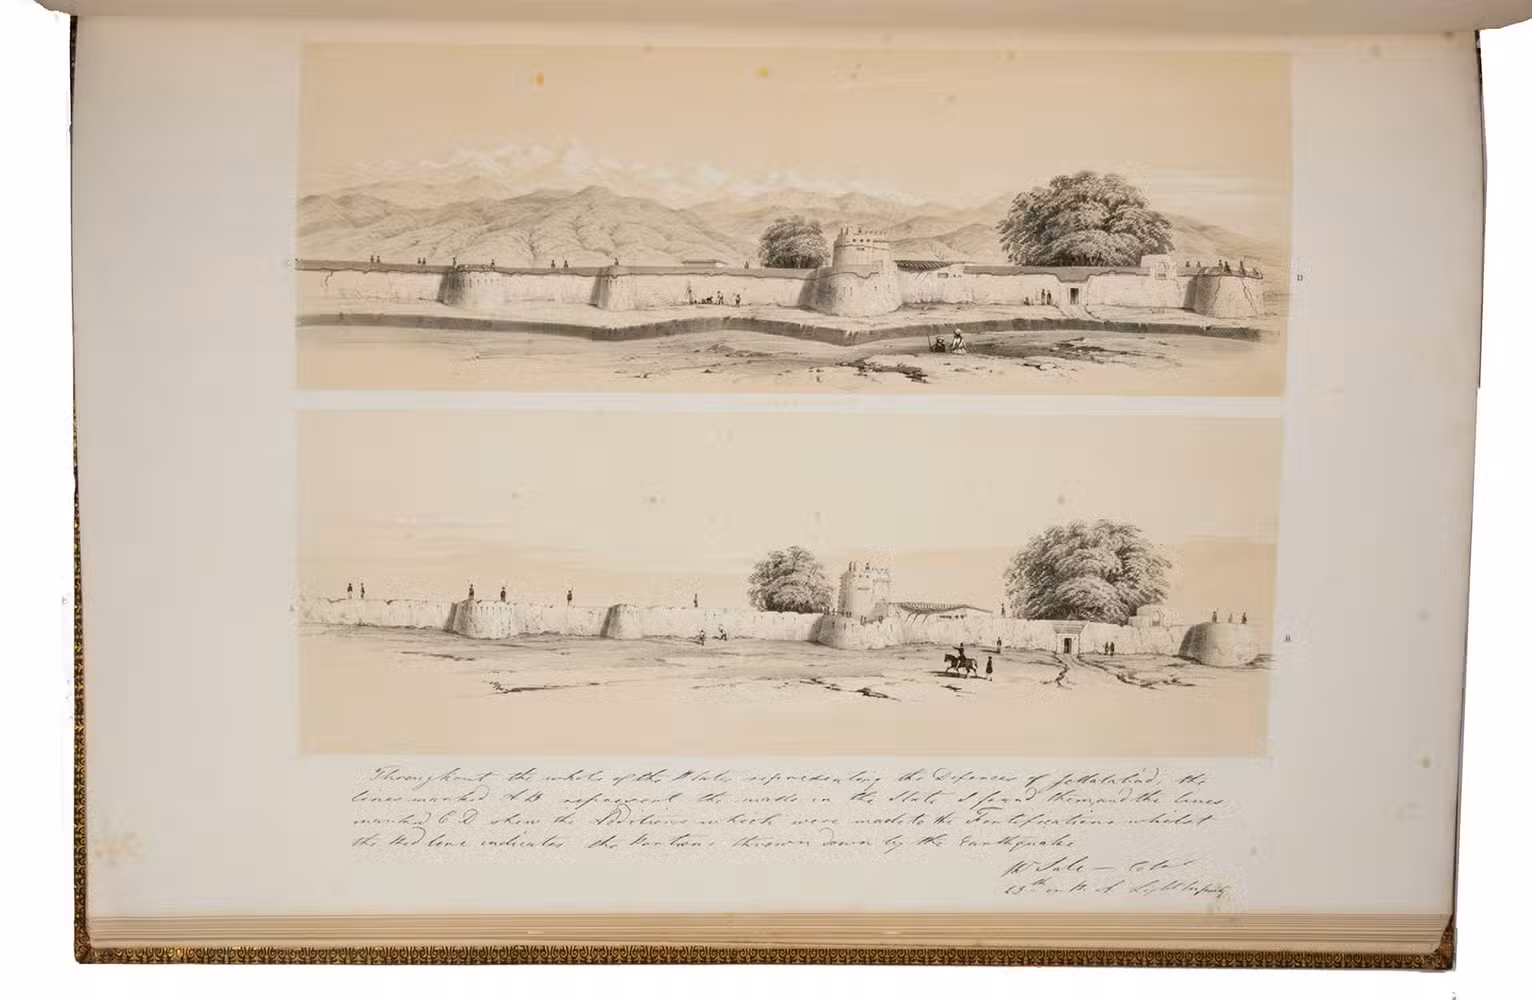 D
A
B
Throughout the whole of the Plates representing the Defences of Jellalabad, the
lines marked A B represent the walls in the State I found them, and the lines
marked C D shew the Additions which were made to the Fortifications whilst
the Red line indicates the Portions thrown down by the Earthquake
R Sale — Col
13th or P. A. Light Infantry